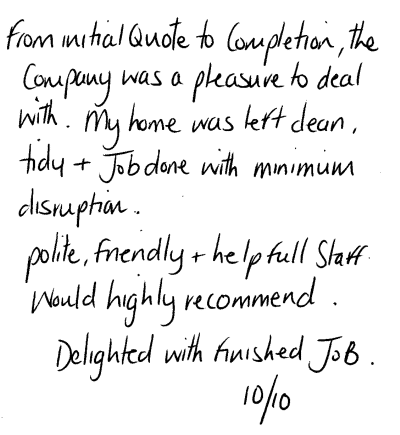 From initial Quote to Completion, the
Company was a pleasure to deal
with. My home was left clean,
tidy + Job done with minimum
disruption.
polite, friendly + helpfull Staff.
Would highly recommend.
Delighted with finished JoB.
10/10